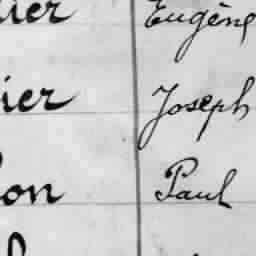 ier Eugène
ier Joseph
on Paul